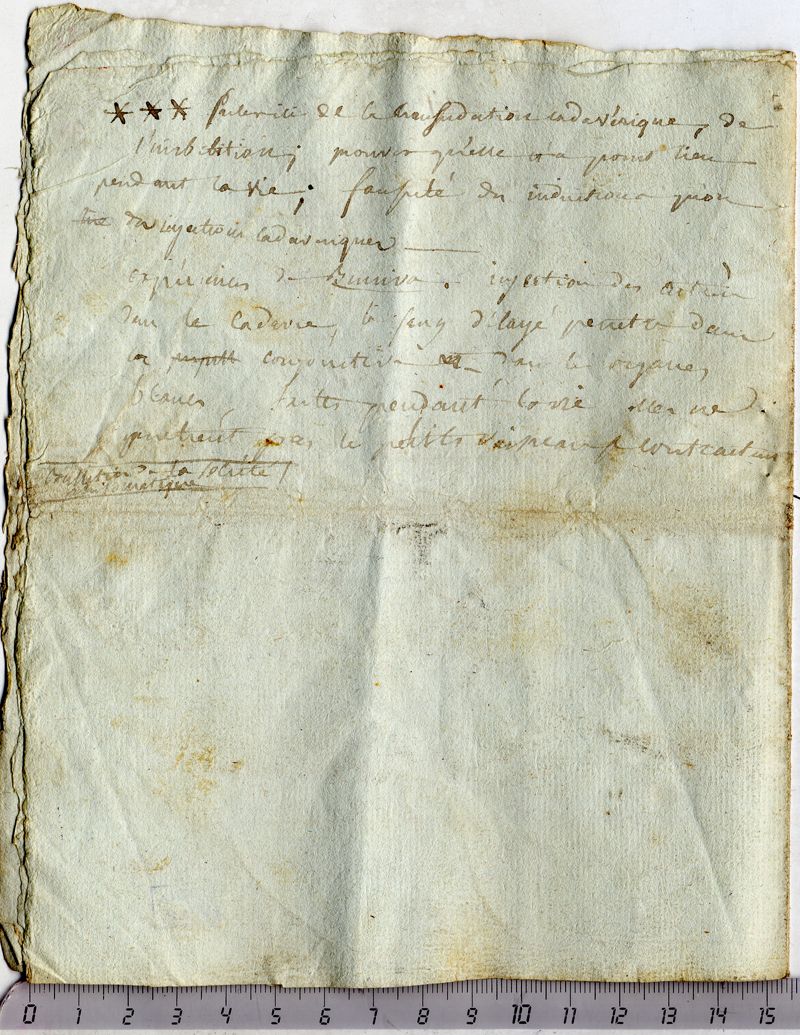 *** de la transudation cadavérique, de
l'imbibition; prouver qu'elle n'a point lieu
pendant la vie; fausseté des inductions qu'on
tire des injections cadavériques
expériences de Buniva. injection des artères
dans le cadavre, le sang délayé penetre dans
la conjonctive et dans les organes
blancs, faites pendant la vie elles ne
penetrent pas les petits vaisseaux
la société
0 1 2 3 4 5 6 7 8 9 10 11 12 13 14 15